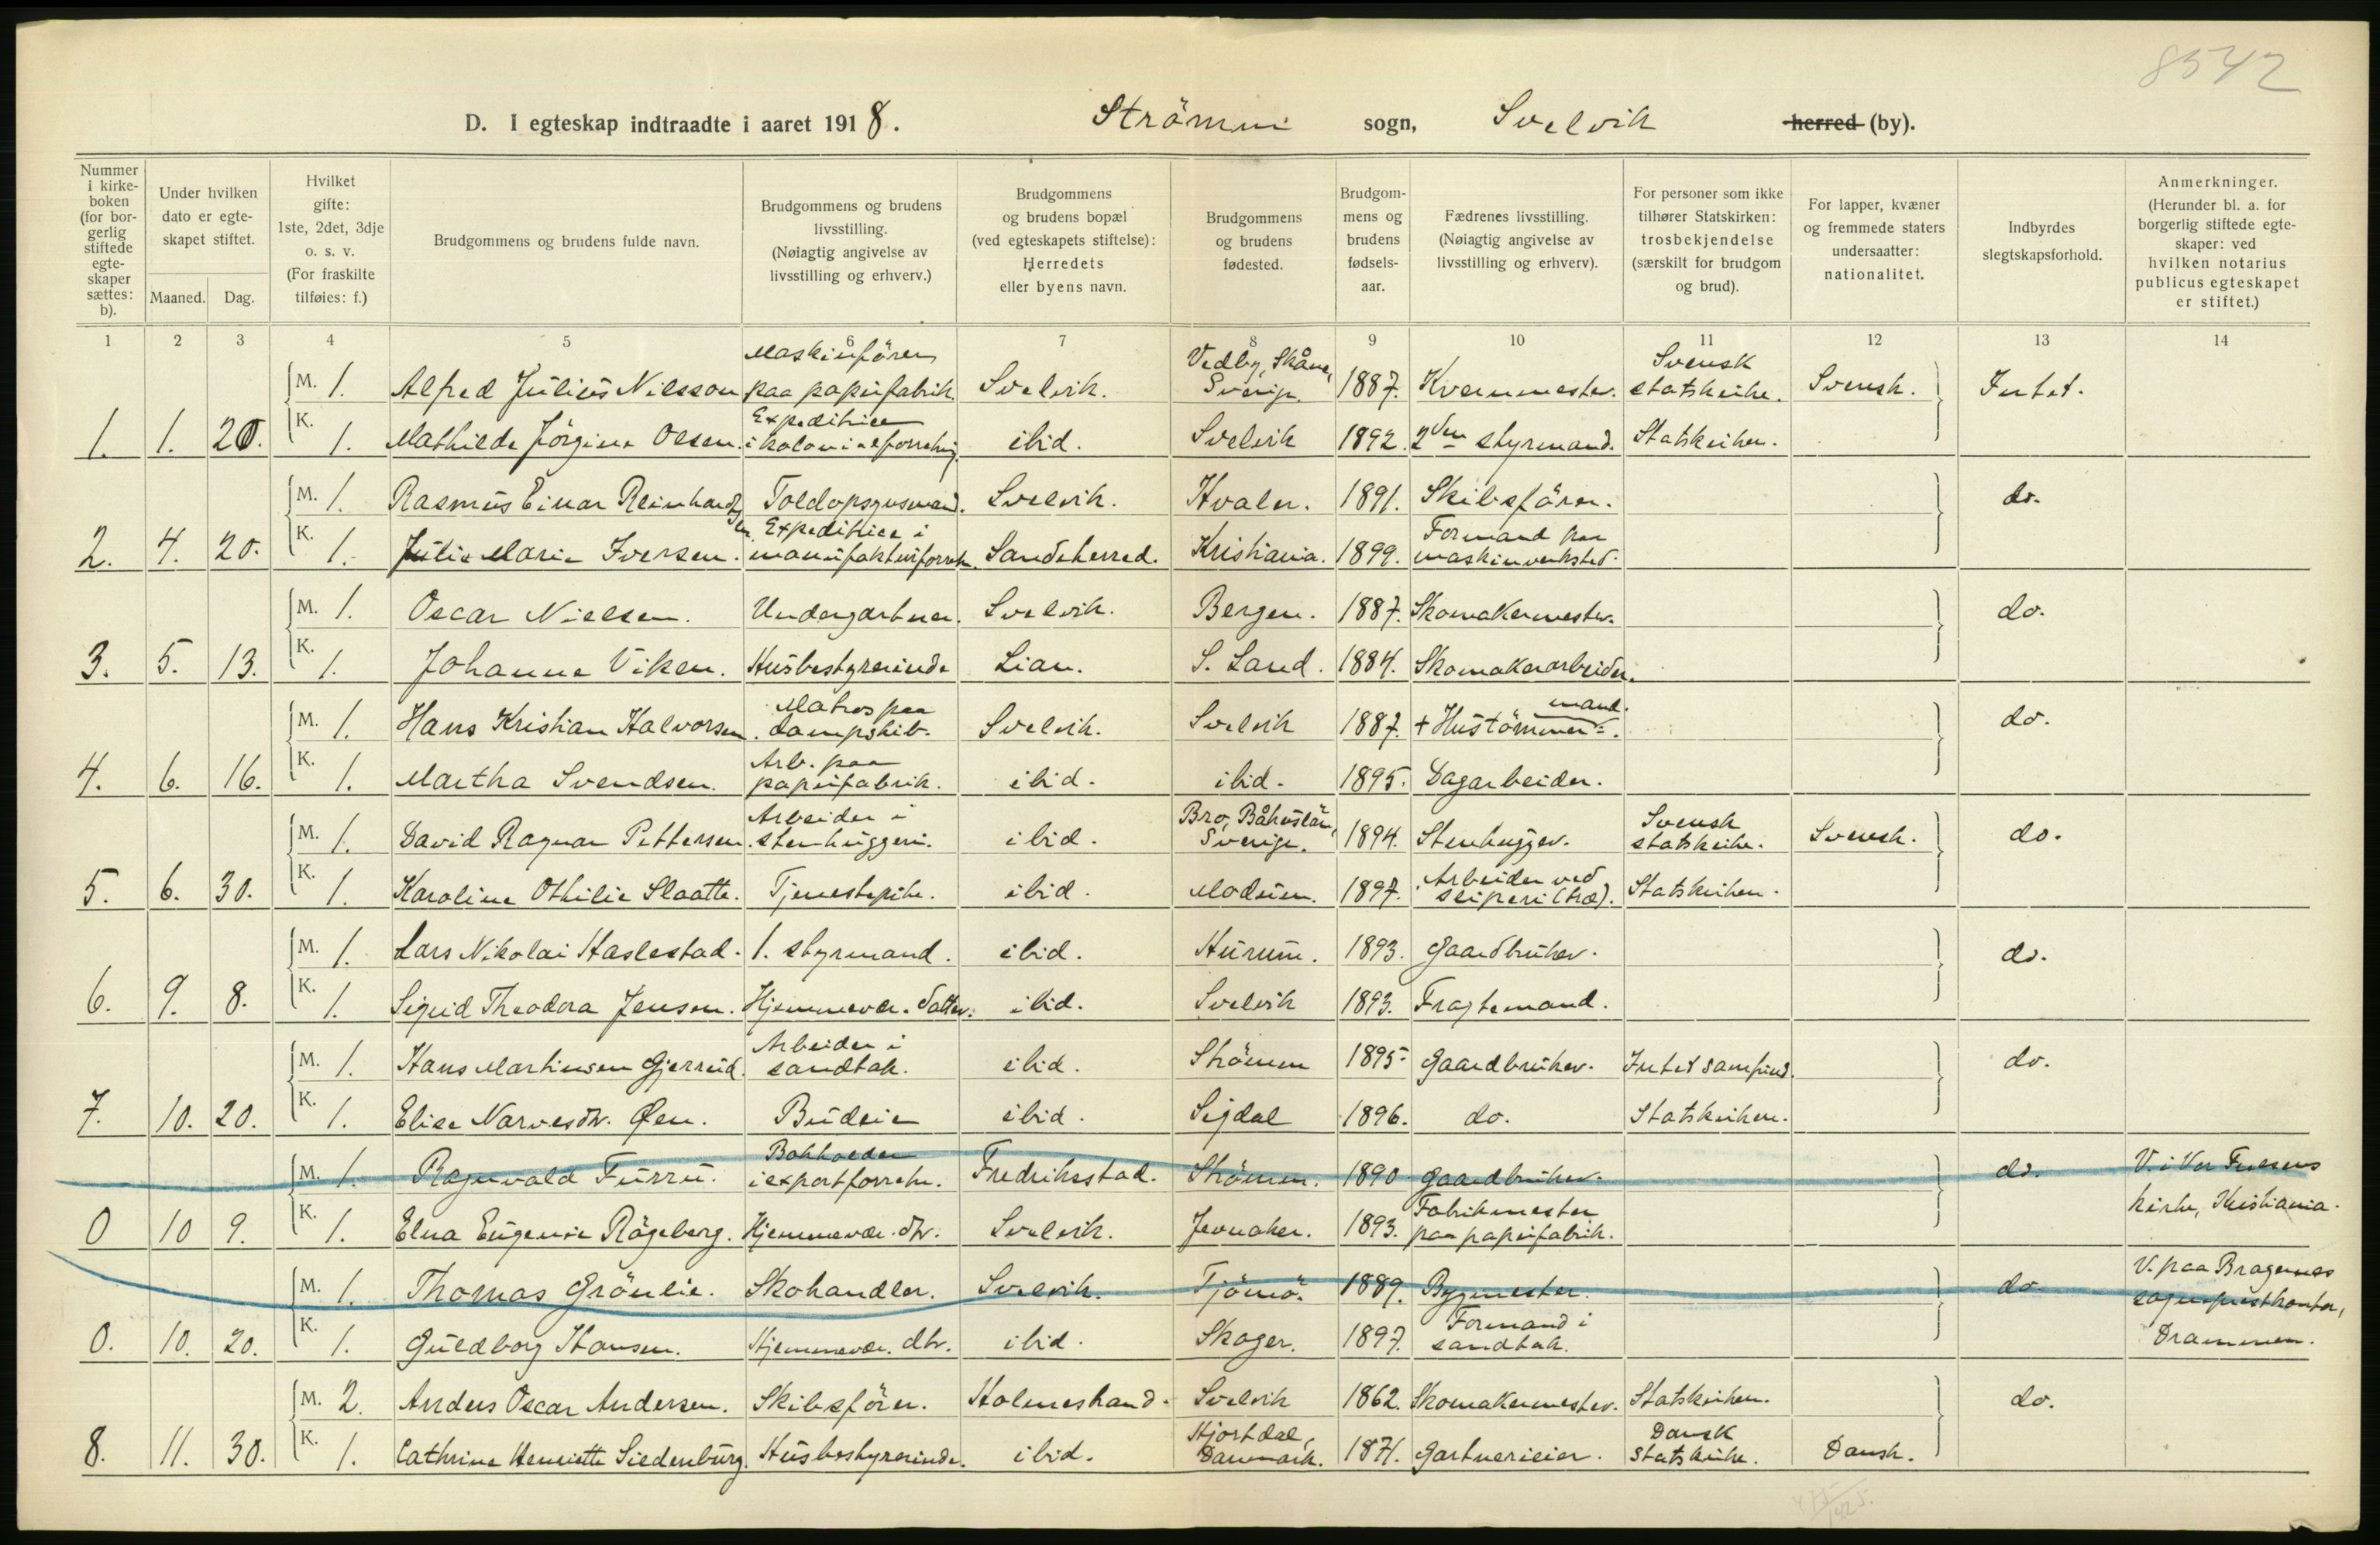 8542
D. I egteskap indtraadte i aaret 1918. Strömm sogn, Svelvik herred (by).
Nummer i kirkeboken (for borgerlig stiftede egteskaper sættes: b).
Under hvilken dato er egteskapet stiftet.
Maaned. Dag.
Hvilket gifte: 1ste, 2det, 3dje o. s. v. (For fraskilte tilføies: f.)
Brudgommens og brudens fulde navn.
Brudgommens og brudens livsstilling. (Nøiagtig angivelse av livsstilling og erhverv.)
Brudgommens og brudens bopæl (ved egteskapets stiftelse): Herredets eller byens navn.
Brudgommens og brudens fødested.
Brudgommens og brudens fødselsaar.
Fædrenes livsstilling. (Nøiagtig angivelse av livsstilling og erhverv).
For personer som ikke tilhører Statskirken: trosbekjendelse (særskilt for brudgom og brud).
For lapper, kvæner og fremmede staters undersaatter: nationalitet.
Indbyrdes slegtskapsforhold.
Anmerkninger. (Herunder bl. a. for borgerlig stiftede egteskaper: ved hvilken notarius publicus egteskapet er stiftet.)
1 2 3 4 5 6 7 8 9 10 11 12 13 14
M. 1. Alfred Julius Nilsson Maskinfören paa papirfabrik. Svelvik. Vedby, Skåne, Sverige. 1887. Kvernmester. Svensk statskirke. Svensk. Intet.
1. 1. 20. K. 1. Mathilde Jörgine Olsen. Expeditrice i kolonialforretnig. ibid. Svelvik 1892. 2den styrmand. Statskirken.
M. 1. Rasmus Einar Reinhardtsen Toldopsynsmand. Svelvik. Hvaler. 1891. Skibsförer. do.
2. 4. 20. K. 1. Julie Marie Iversen. Expeditrice i manufakturforretn. Sandeherred. Kristiania. 1899. Formand paa maskinverksted.
M. 1. Oscar Nielsen. Undergartner. Svelvik. Bergen. 1887. Skomakermester. do.
3. 5. 13. K. 1. Johanne Viken. Husbestyrerinde Lian. S. Land. 1884. Skomakerarbeider.
M. 1. Hans Kristian Halvorsen. Matros paa dampskib. Svelvik. Svelvik 1887. + Hustömmermand. do.
4. 6. 16. K. 1. Martha Svendsen. Arb. paa papirfabrik. ibid. ibid. 1895. Dagarbeider.
M. 1. David Ragnar Pettersen. Arbeider i stenhuggeri. ibid. Bro, Båhuslän, Sverige. 1894. Stenhugger. Svensk statskirke. Svensk. do.
5. 6. 30. K. 1. Karoline Othilie Slaatte. Tjenestepike. ibid. Modum. 1897. Arbeider ved sliperi (træ). Statskirken.
M. 1. Lars Nikolai Haslestad. 1. styrmand. ibid. Hurum. 1893. Gaardbruker. do.
6. 9. 8. K. 1. Sigrid Theodora Jensen. Hjemmevær. datter. ibid. Svelvik 1893. Fragtemand.
M. 1. Hans Martinsen Gjerrud. Arbeider i sandtak. ibid. Strömm 1895. Gaardbruker. Intet samfund. do.
7. 10. 20. K. 1. Elise Narvesdtr. Øen. Budeie ibid. Sigdal 1896. do. Statskirken.
M. 1. Ragnvald Furru. Bokholder i exportforretn. Fredriksstad. Strömm. 1890 Gaardbruker. do. V. i Vor Frelsers
0 10 9. K. 1. Elna Eugenie Rögeberg. Hjemmevær. dtr. Svelvik. Jevnaker. 1893. Fabrikmester paa papirfabrik. kirke, Kristiania.
M. 1. Thomas Grönlie. Skohandler. Svelvik. Tjömö. 1889. Bygmester. do. V. paa Bragernes sogneprestkontor,
0. 10. 20. K. 1. Guldborg Hansen. Hjemmevær. dtr. ibid. Skoger. 1897. Formand i sandtak. Drammen.
M. 2. Anders Oscar Andersen. Skibsförer. Holmestrand. Svelvik 1862. Skomakermester. Statskirken. do.
8. 11. 30. K. 1. Cathrine Henriette Siedenburg. Husbestyrerinde. ibid. Hjortdal, Danmark. 1871. Gartnerieier. Dansk Statskirke. Dansk.